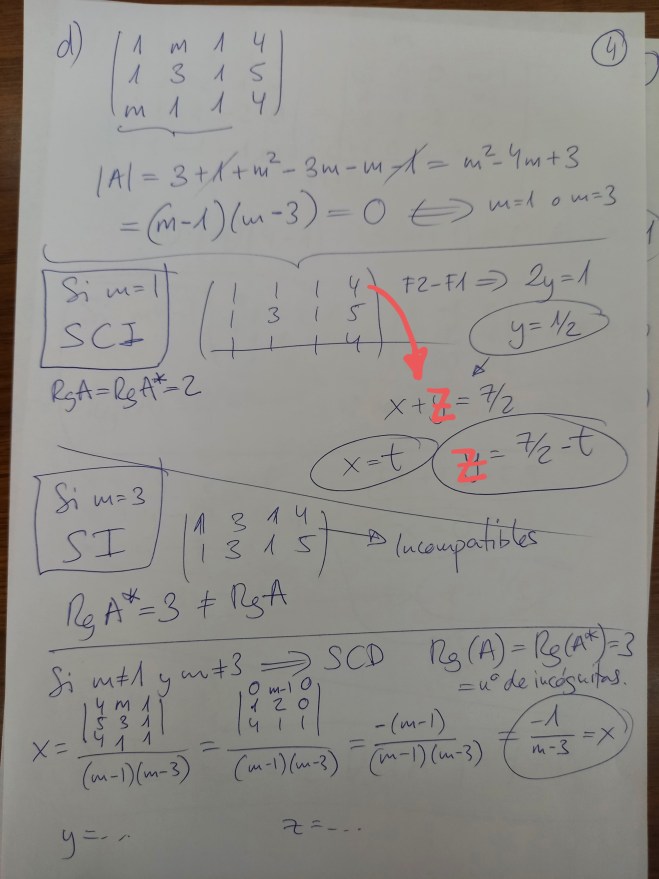 d) | 1 m 1 4 |
| 1 3 1 5 |
| m 1 1 4 |
4
|A| = 3 + 1 + m² - 3m - m - 1 = m² - 4m + 3
= (m-1)(m-3) = 0 ⟺ m=1 o m=3
Si m=1
SCI
( 1 1 1 4 )
( 1 3 1 5 )
( 1 1 1 4 )
F2-F1 ⇒ 2y=1
y=1/2
RgA=RgA*=2
x+z=7/2
x=t
z=7/2-t
Si m=3
SI
( 1 3 1 4 )
( 1 3 1 5 )
→ Incompatibles
RgA*=3 ≠ RgA
Si m≠1 y m≠3 ⟹ SCD
Rg(A)=Rg(A*)=3
= nº de incógnitas.
x = | 4 m 1 | = | 0 m-1 0 | = -(m-1) = -1 = x
| 5 3 1 | | 1 2 0 |
| 4 1 1 | | 4 1 1 |
(m-1)(m-3) (m-1)(m-3) (m-1)(m-3) m-3
y=...
z=...